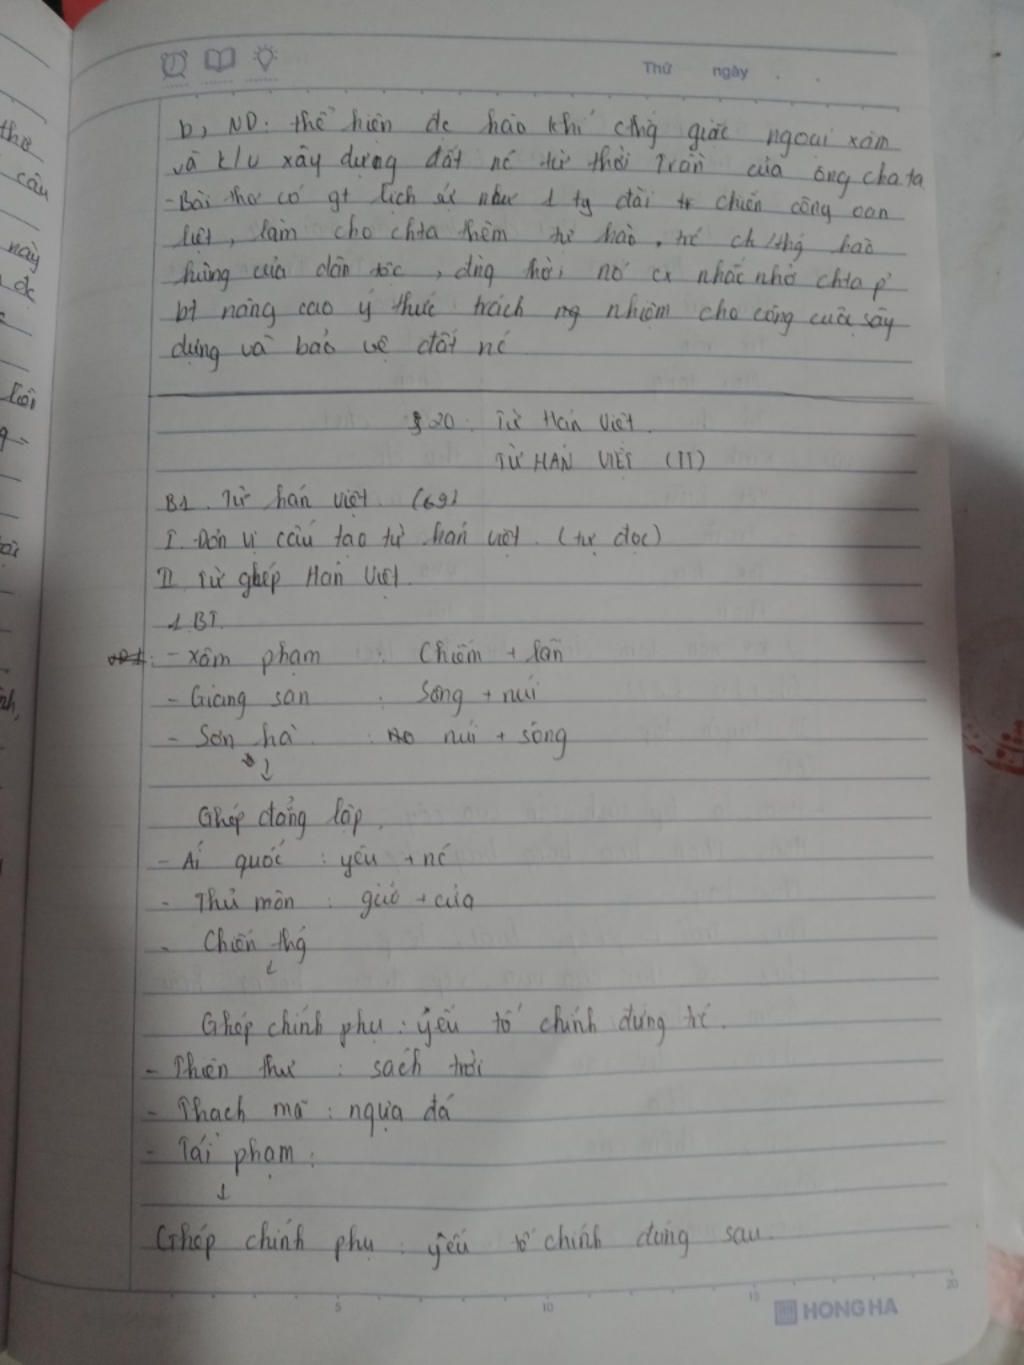 Thứ ngày . .
b, ND: thể hiện đc hào khí cthg giặc ngoại xâm
và k/v xây dựng đất nc từ thời Trần của ông cha ta
- Bài thơ có gt lịch sử như 1 tg đài tr chiến công oan
liệt, làm cho chta thêm tự hào, tr c/thg hào
hùng của dân tộc, đng thời nó cx nhắc nhở chta p'
bt nâng cao ý thức trách ng nhiệm cho công cuộc sây
dựng và bảo vệ đất nc
§ 20: Từ Hán Việt.
TỪ HÁN VIỆT (II)
B1. Từ hán việt. (69)
I. Đơn vị cấu tạo từ hán việt. (tự đọc)
II. Từ ghép Hán Việt.
1. BT.
- Xâm phạm : Chiếm + lấn
- Giang san : Sông + núi
- Sơn hà : núi + sông
↓
Ghép đẳng lập.
- Ái quốc : yêu + nc
- Thủ môn : giữ + cửa
- Chiến thg
↓
Ghép chính phụ : yếu tố chính đứng trc.
- Thiên thư : sách trời
- Thạch mã : ngựa đá
- Tái phạm :
↓
Ghép chính phụ : yếu tố chính đứng sau.
5 10 15 20
HONG HA